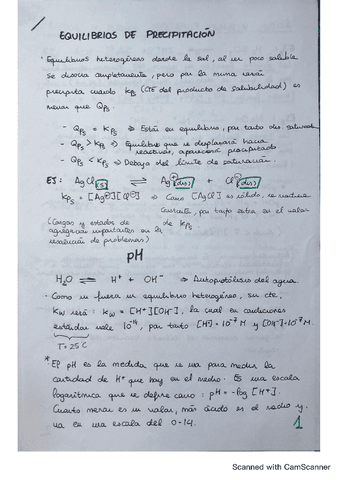 EQUILIBRIOS DE PRECIPITACIÓN
· Equilibrios heterogéneos donde la sal, al ser poco soluble
se disocia completamente, pero por la misma razón
precipita cuando Kps (CTE del producto de solubilidad) es
menor que Qps.
- Qps = Kps => Están en equilibrio, por tanto dis. saturada
- Qps > Kps => Equilibrio que se desplazará hacia
reactivos, aparecerá precipitado
- Qps < Kps => Debajo del límite de saturación.
EJ: AgCl (s) ⇌ Ag+ (dis) + Cl- (dis)
Kps = [Ag+][Cl-] => Como [AgCl] es sólido, se mantiene
constante, por tanto entra en el valor
de Kps
(Cargas y estados de
agregación importantes en la
resolución de problemas)
pH
H2O ⇌ H+ + OH- => Autoprotólisis del agua.
· Como si fuera un equilibrio heterogéneo, su cte.
Kw será: Kw = [H+][OH-], la cual en condiciones
estándar vale 10-14, por tanto [H+]=10-7 M y [OH-]=10-7 M.
T = 25 C
* El pH es la medida que se usa para medir la
cantidad de H+ que hay en el medio. Es una escala
logarítmica que se define como: pH = -log [H+].
Cuanto menor es su valor, más ácido es el medio y
va en una escala del 0-14.
1
Scanned with CamScanner